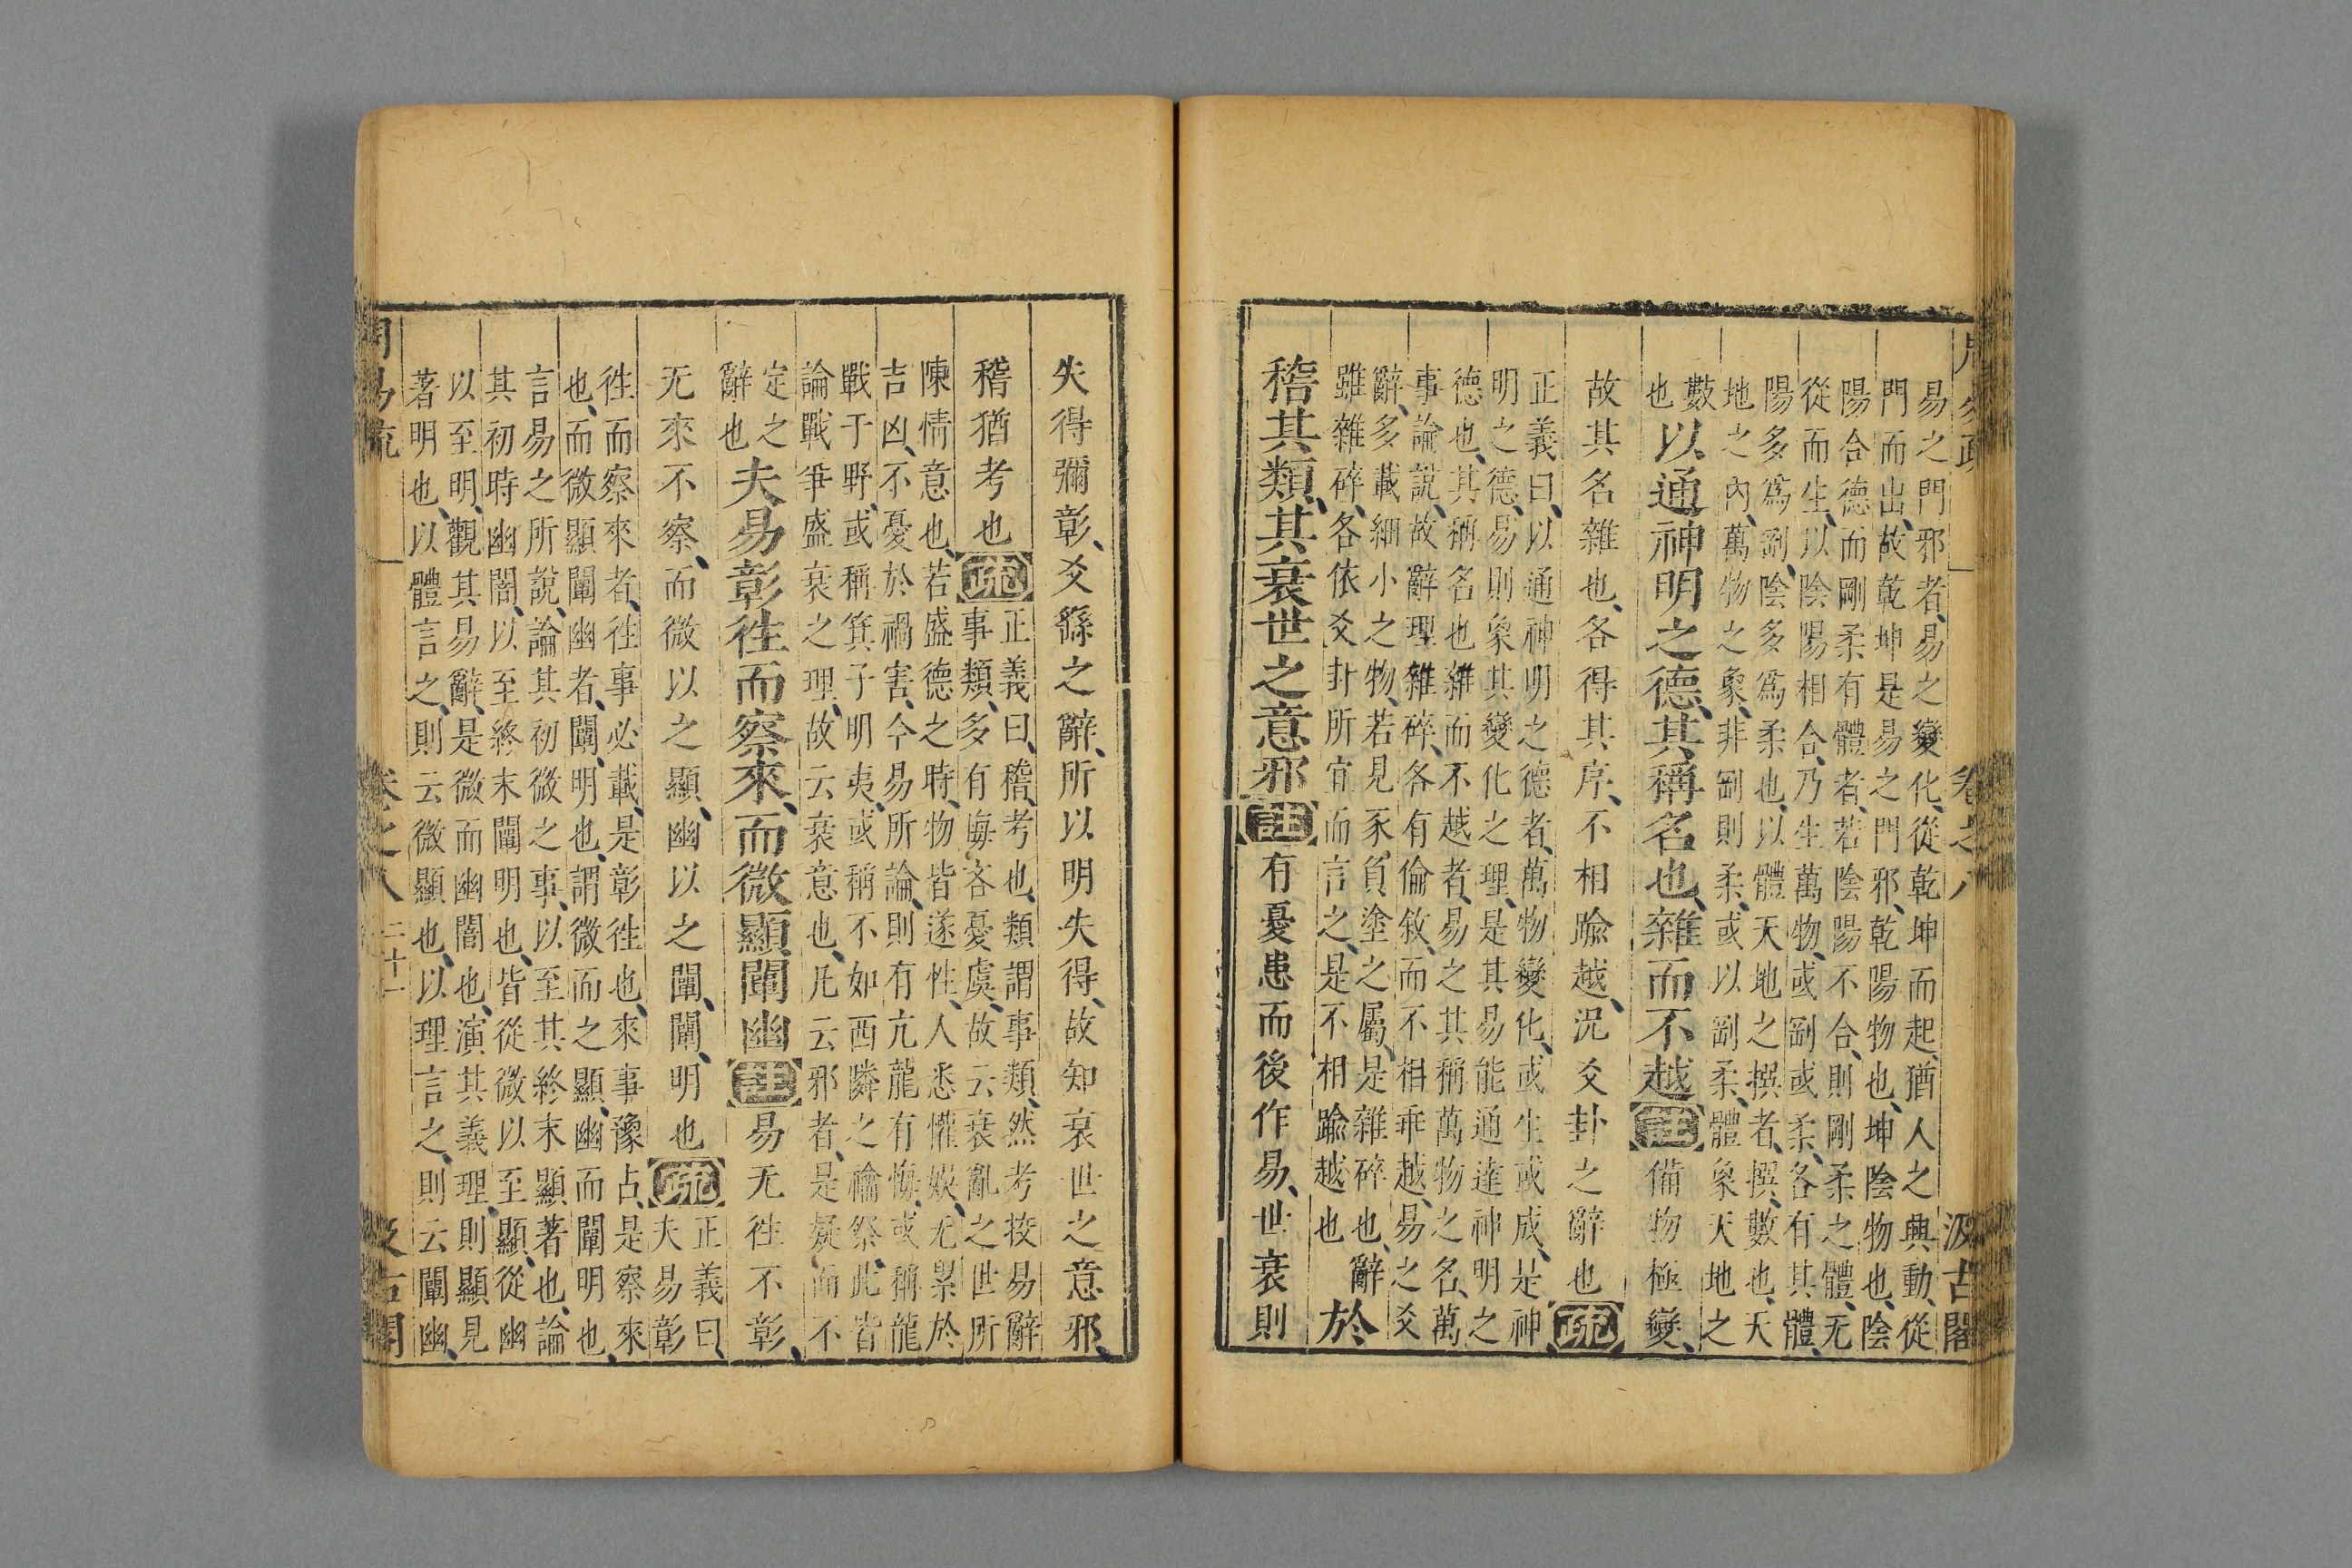 周易疏 卷之八 汲古閣
易之門邪者、易之變化、從乾坤而起、猶人之興動、從
門而出、故乾坤是易之門邪、乾陽物也、坤陰物也、陰
陽合德而剛柔有體者、若陰陽不合、則剛柔之體、无
從而生、以陰陽相合、乃生萬物、或剛或柔、各有其體、
陽多爲剛、陰多爲柔也、以體天地之撰者、撰、數也、天
地之內、萬物之象、非剛則柔、或以剛柔、體象天地之
數
也以通神明之德、其稱名也、雜而不越註備物極變、
故其名雜也、各得其序、不相踰越、況爻卦之辭也疏
正義曰、以通神明之德者、萬物變化、或生或成、是神
明之德、易則象其變化之理、是其易能通達神明之
德也、其稱名也雜而不越者、易之其稱萬物之名、萬
事論說、故辭理雜碎、各有倫敘、而不相乖越、易之爻
辭、多載細小之物、若見豕負塗之屬、是雜碎也、辭
雖雜碎、各依爻卦所宜而言之、是不相踰越也於
稽其類、其衰世之意邪註有憂患而後作易、世衰則
失得彌彰、爻繇之辭、所以明失得、故知衰世之意邪、
稽猶考也疏正義曰、稽、考也、類謂事類、然考挍易辭
事類、多有悔吝憂虞、故云衰亂之世所
陳情意也、若盛德之時、物皆遂性、人悉懽娛、无累於
吉凶、不憂於禍害、今易所論、則有亢龍有悔、或稱龍
戰于野、或稱箕子明夷、或稱不如西隣之禴祭、此皆
論戰爭盛衰之理、故云衰意也、凡云邪者、是疑而不
定之
辭也夫易彰徃而察來、而微顯闡幽註易无徃不彰、
无來不察、而微以之顯、幽以之闡、闡、明也疏正義曰、
夫易彰
徃而察來者、徃事必載、是彰徃也、來事豫占、是察來
也、而微顯闡幽者、闡、明也、謂微而之顯、幽而闡明也、
言易之所說、論其初微之事、以至其終末顯著也、論
其初時幽闇、以至終末闡明也、皆從微以至顯、從幽
以至明、觀其易辭、是微而幽闇也、演其義理、則顯見
著明也、以體言之、則云微顯也、以理言之、則云闡幽、
周易疏 卷之八 二十一 汲古閣